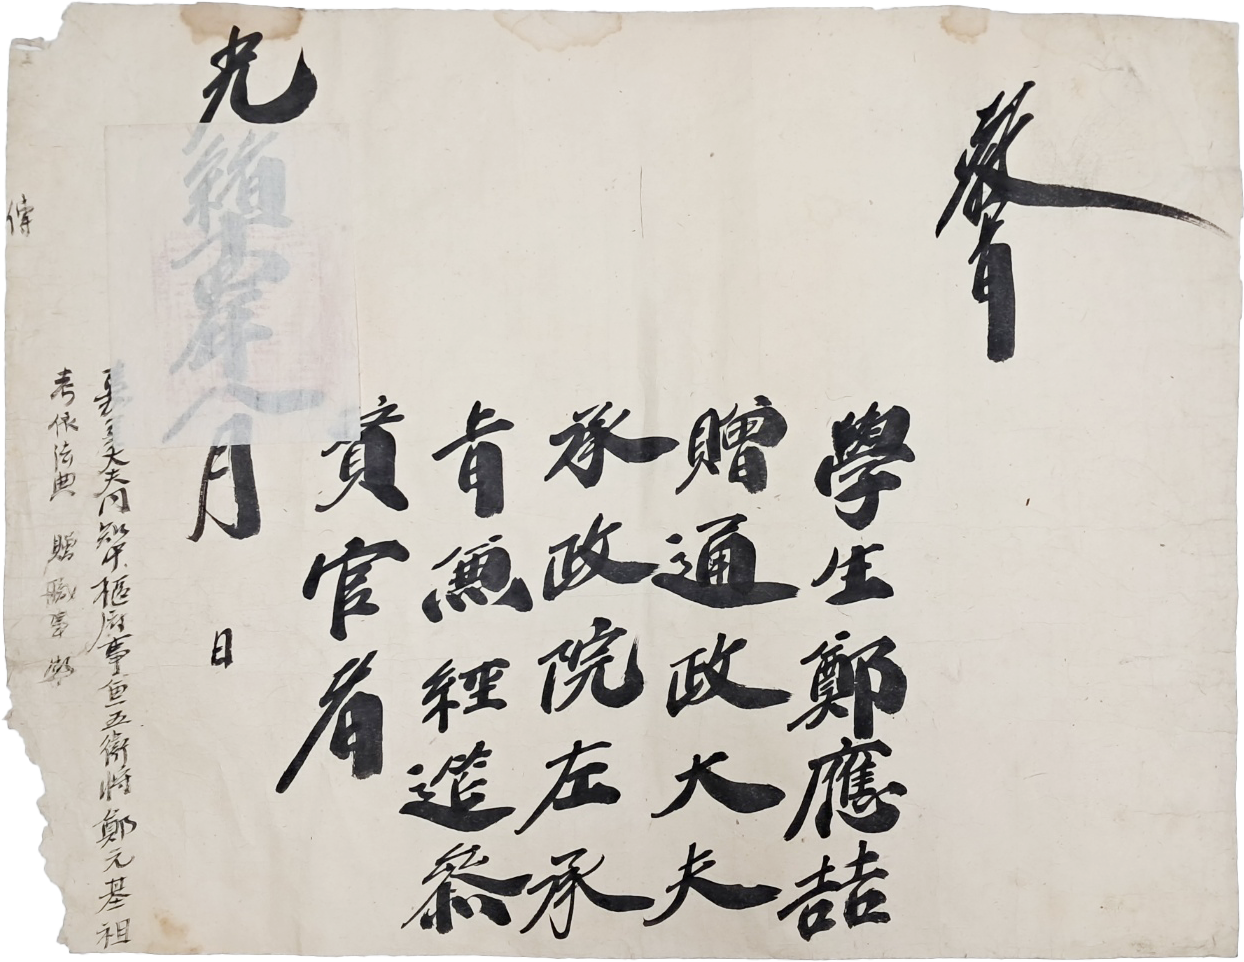 敎旨
學生鄭應喆
贈通政大夫
承政院左承
旨兼經筵參
贊官者
光緖十六年八月 日
嘉善大夫同知中樞府事兼五衛將鄭元基祖
考依法典 贈職事承
傳